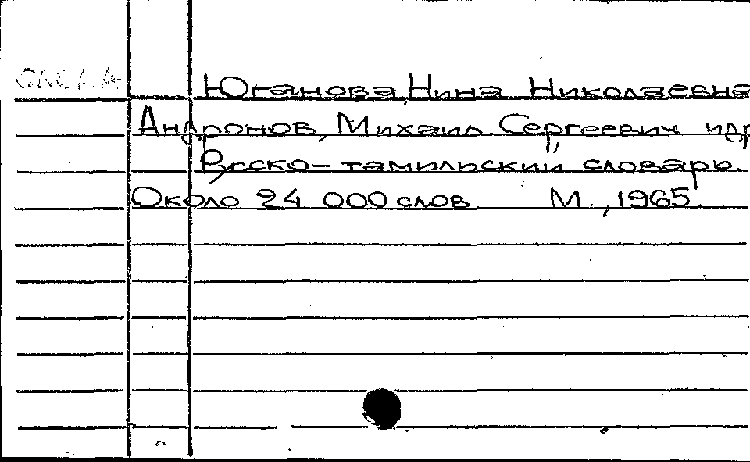 Юганова, Нина Николаевна
Андронов, Михаил Сергеевич и др
Русско-тамильский словарь.
Около 24 000 слов М., 1965